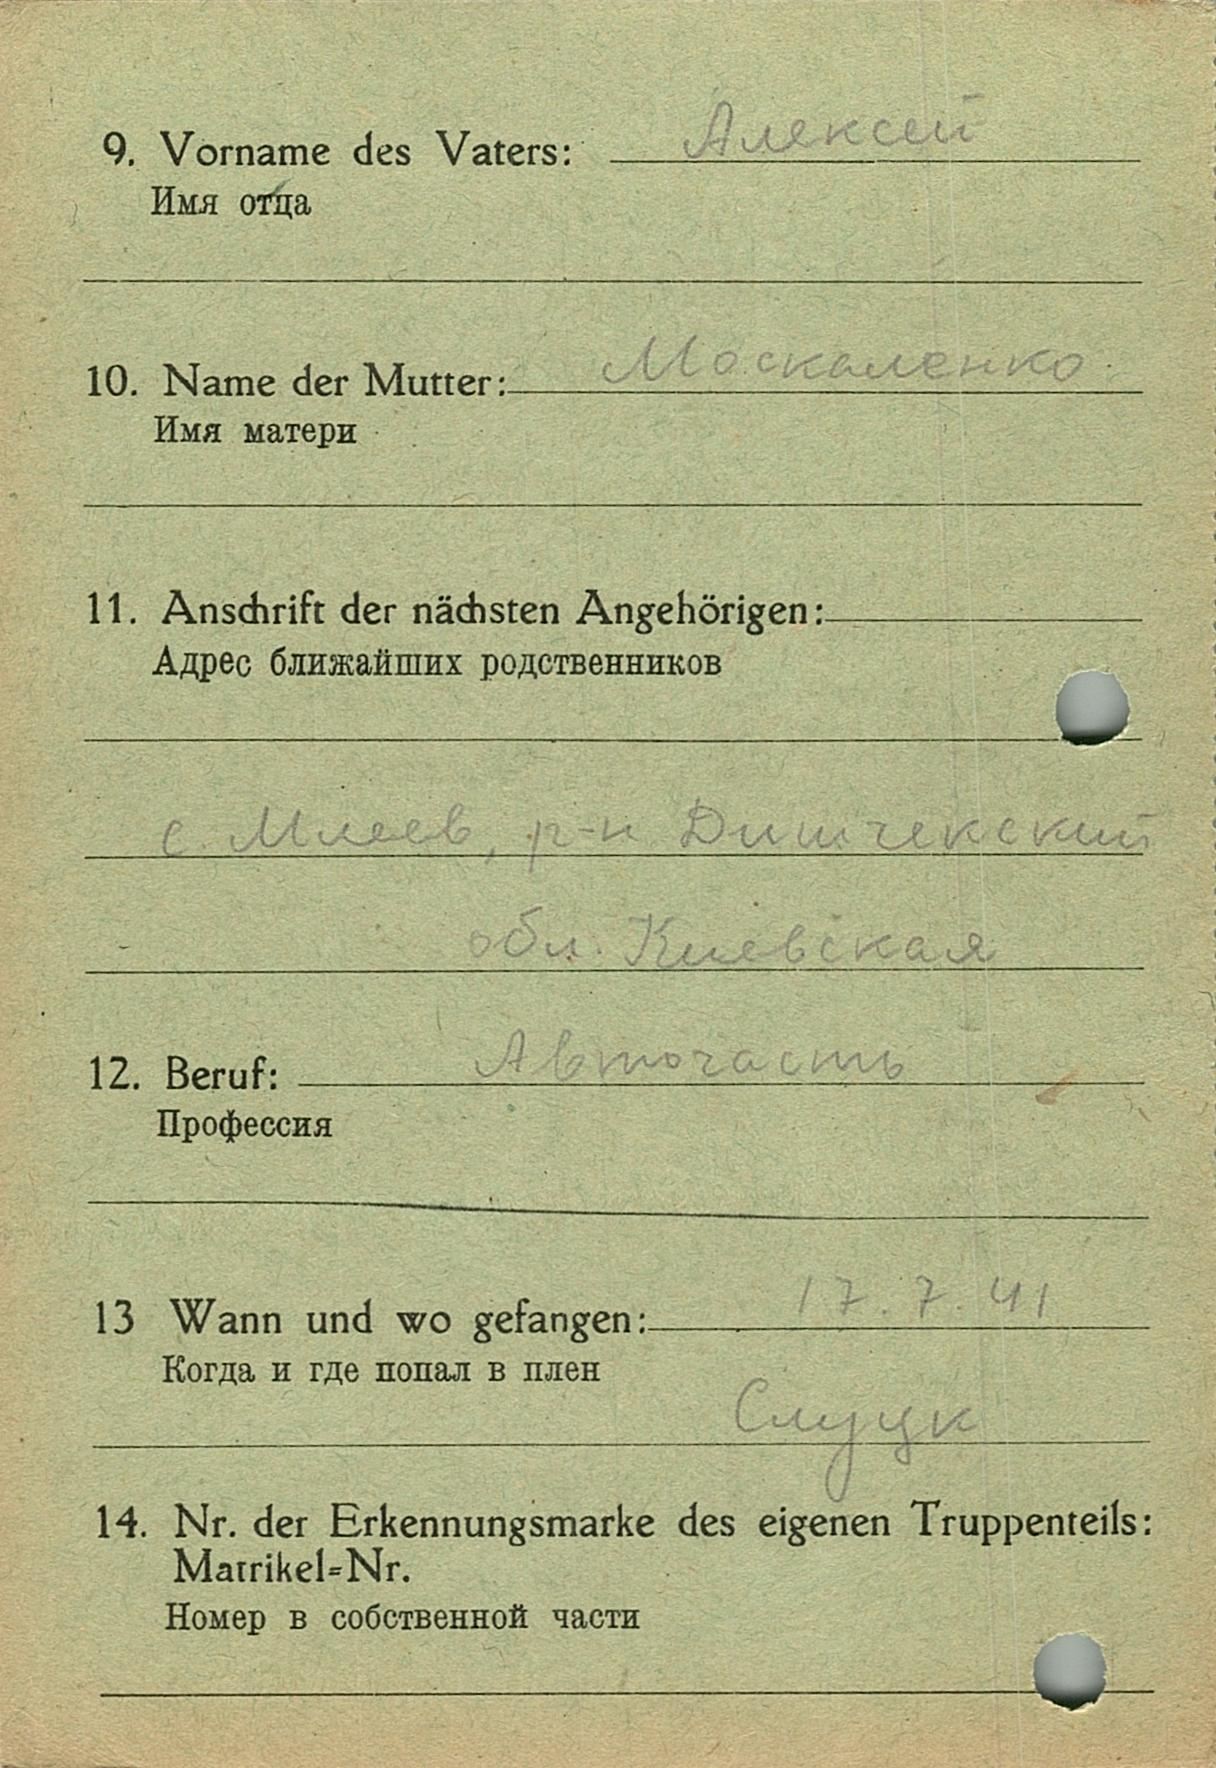 9. Vorname des Vaters: Алексей
Имя отца
10. Name der Mutter: Москаленко
Имя матери
11. Anschrift der nächsten Angehörigen:
Адрес ближайших родственников
с. Млеев, р-н Дитчекский
обл. Киевская
12. Beruf: Авточасть
Профессия
13 Wann und wo gefangen: 17. 7. 41
Когда и где попал в плен
Слуцк
14. Nr. der Erkennungsmarke des eigenen Truppenteils:
Matrikel=Nr.
Номер в собственной части